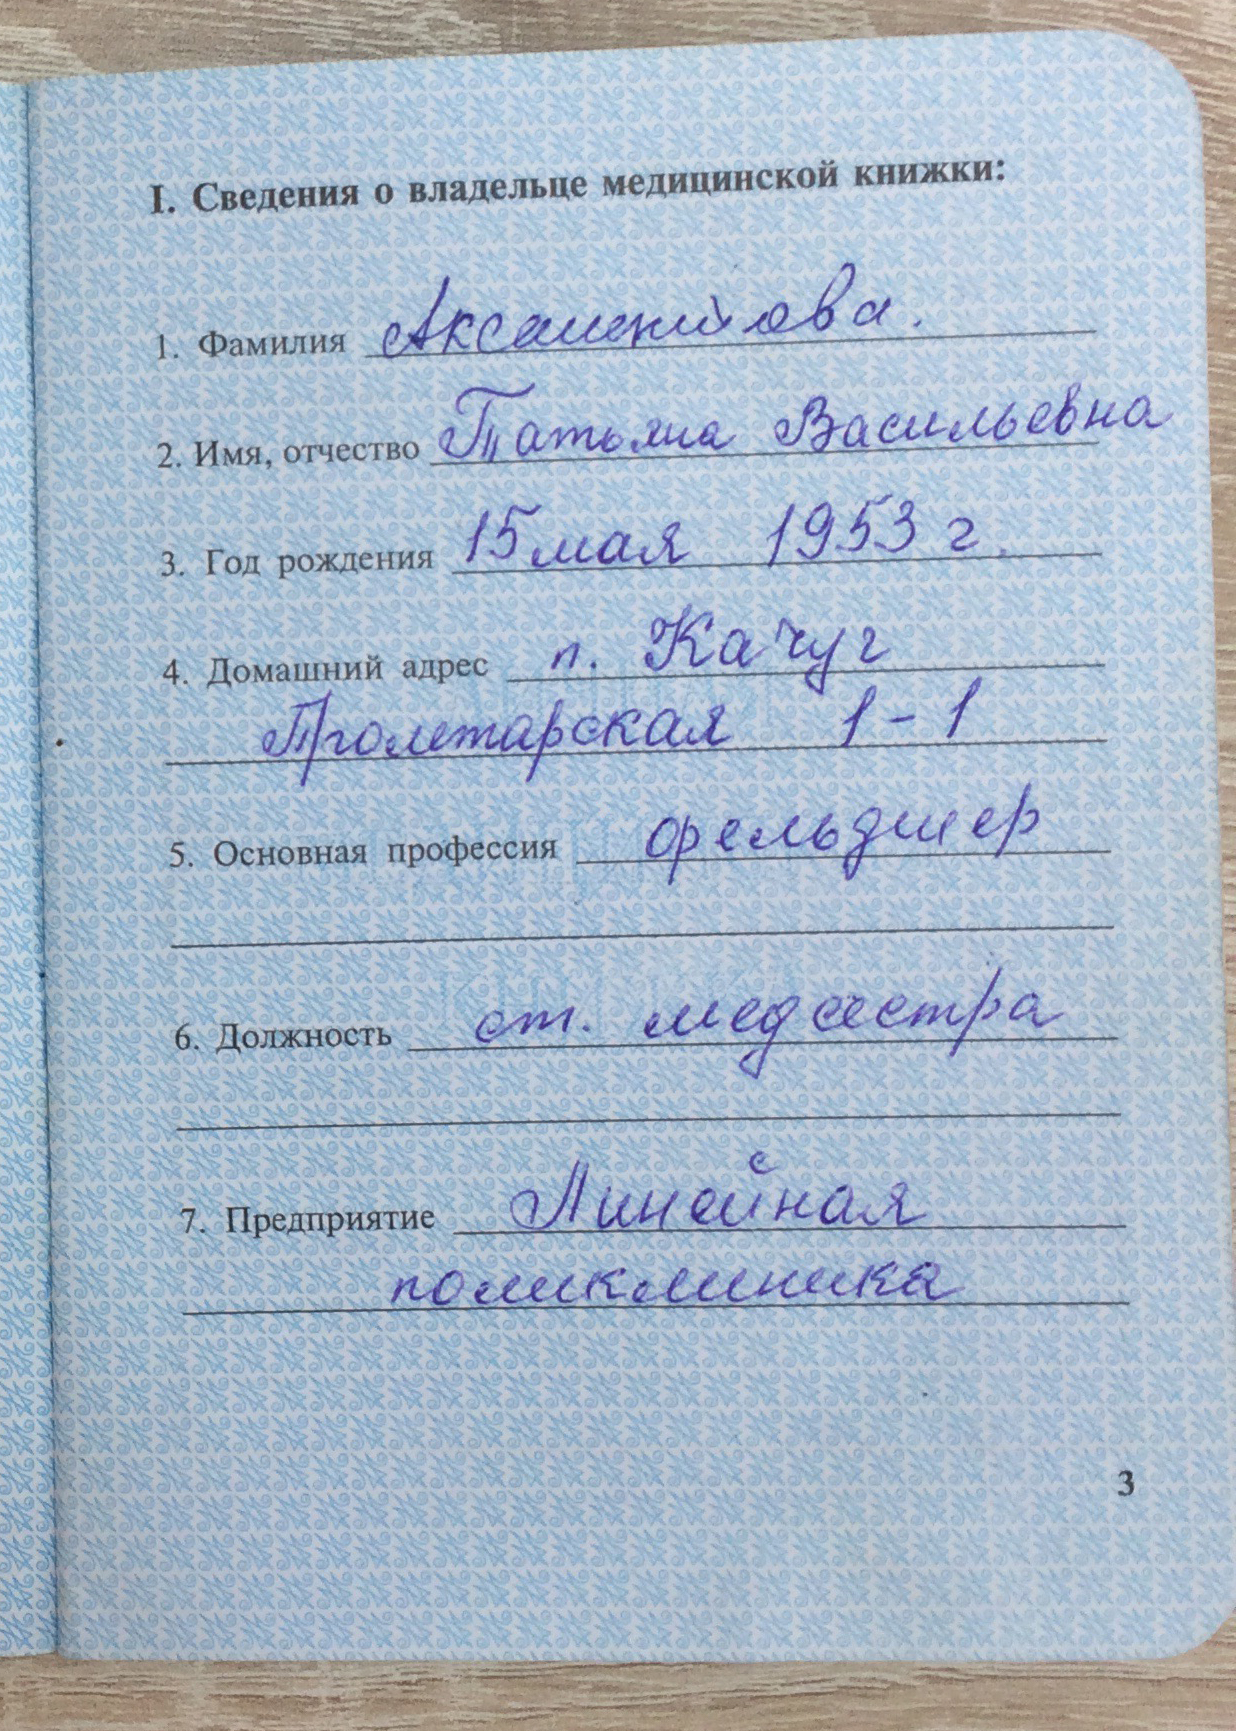 I. Сведения о владельце медицинской книжки:
1. Фамилия Аксаментова.
2. Имя, отчество Татьяна Васильевна
3. Год рождения 15 мая 1953 г.
4. Домашний адрес п. Качуг
Пролетарская 1-1
5. Основная профессия фельдшер
6. Должность ст. медсестра
7. Предприятие Линейная
поликлиника
3